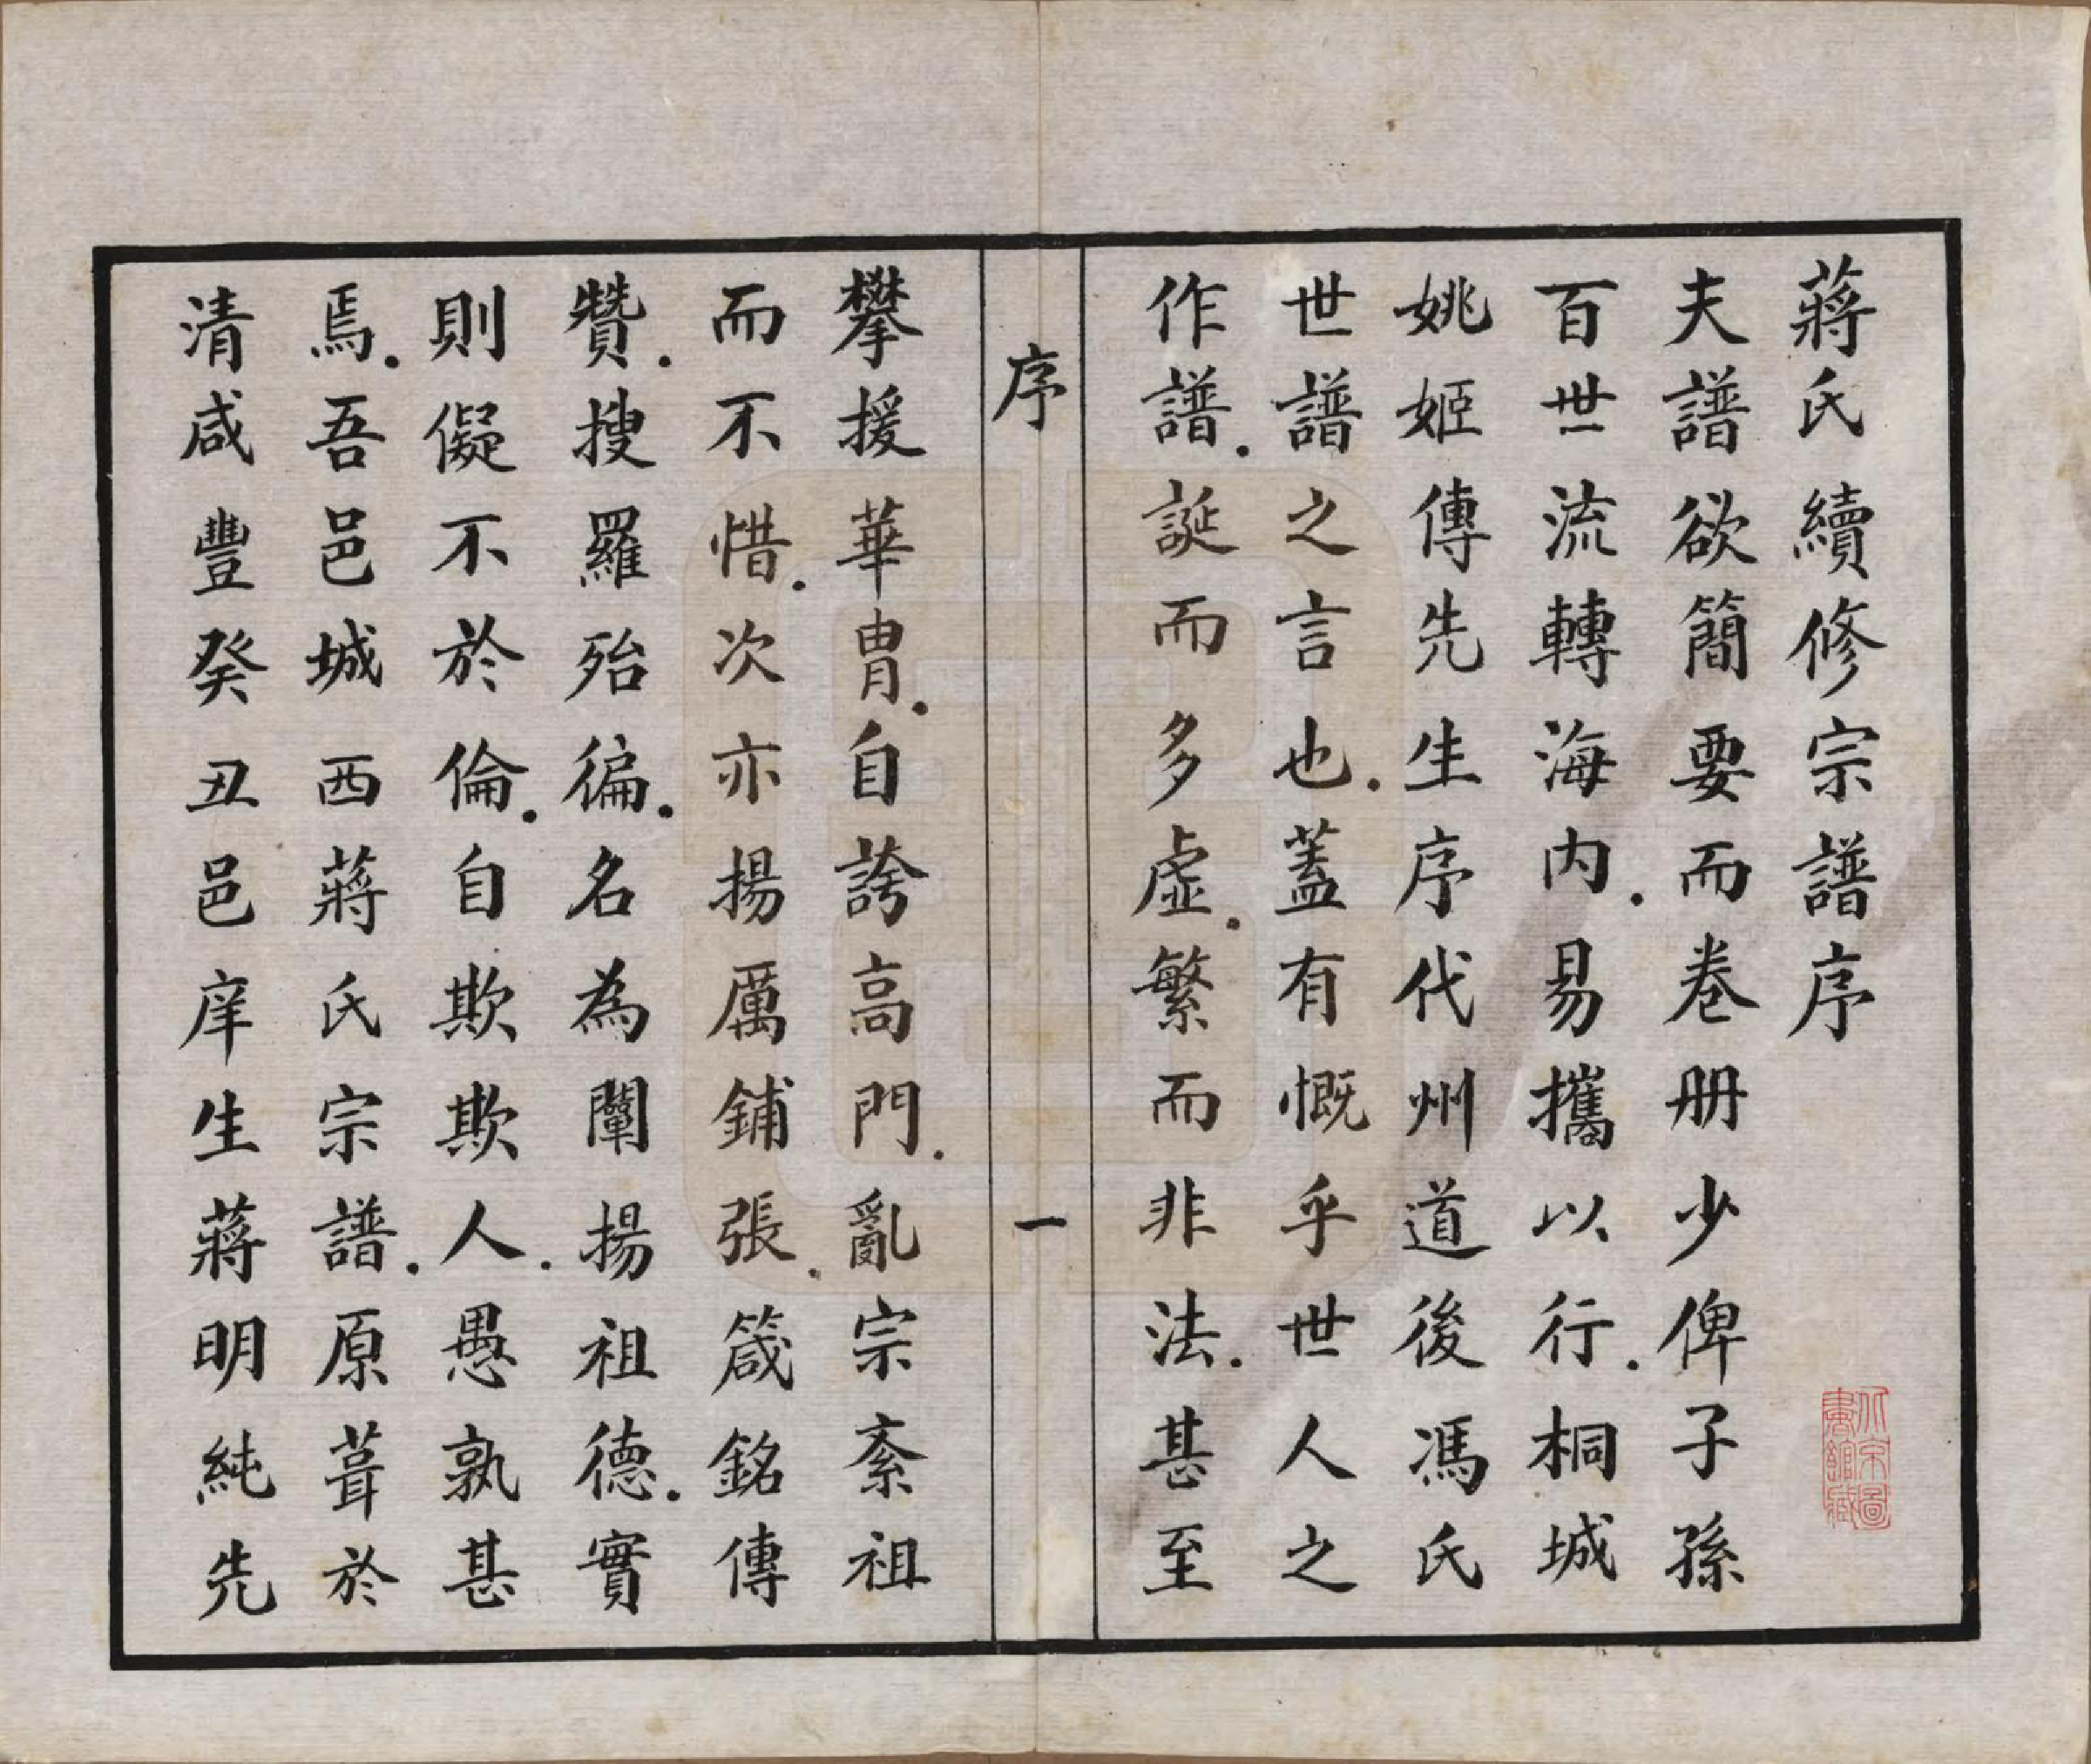 蔣氏續修宗譜序
夫譜欲簡要而卷册少俾子孫
百世流轉海内.易攜以行.桐城
姚姬傳先生序代州道後馮氏
世譜之言也.蓋有慨乎世人之
作譜.誕而多虛.繁而非法.甚至
序 一
攀援華胄.自誇高門.亂宗紊祖
而不惜.次亦揚厲鋪張.箴銘傳
贊.搜羅殆徧.名為闡揚祖德.實
則儗不於倫.自欺欺人.愚孰甚
焉.吾邑城西蔣氏宗譜.原葺於
清咸豐癸丑邑庠生蔣明純先